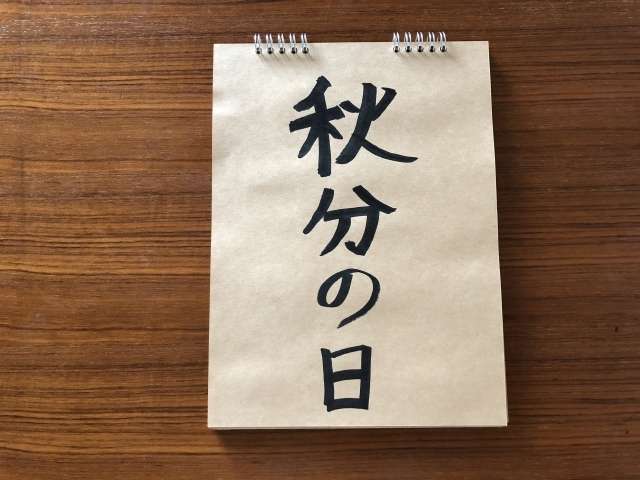 秋分の日